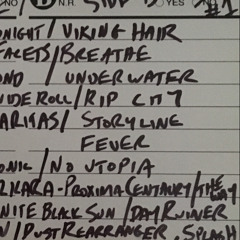 NO N.R. SIDE YES NO #1
ONIGHT/VIKING HAIR
FACETS/BREATHE
OND/UNDERWATER
UDEROLL/RIP CITY
ARITAS/STORYLINE
FEVER
ONIC/NO UTOPIA
RKARA-PROXIMA CENTAURY/THE WAY
NITE BLACK SUN/DAY RUINER
N/DUST REARRANGER.SPLASH